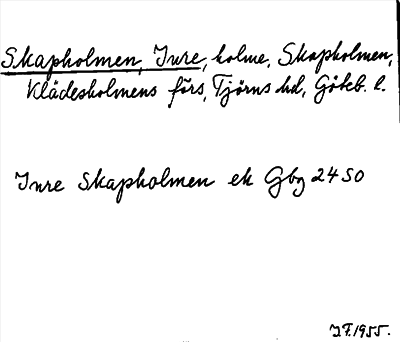 Skapholmen, Inre, holme, Skapholmen,
Klädesholmens förs, Tjörns hd, Göteb. l.
Inre Skapholmen ek Gbg 24 SO
J.F. 1955.